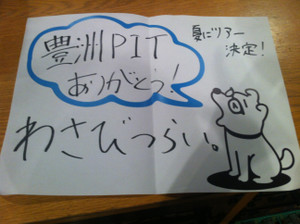 豊洲PIT
ありがとう!
夏にツアー
決定!
わさびつらい。